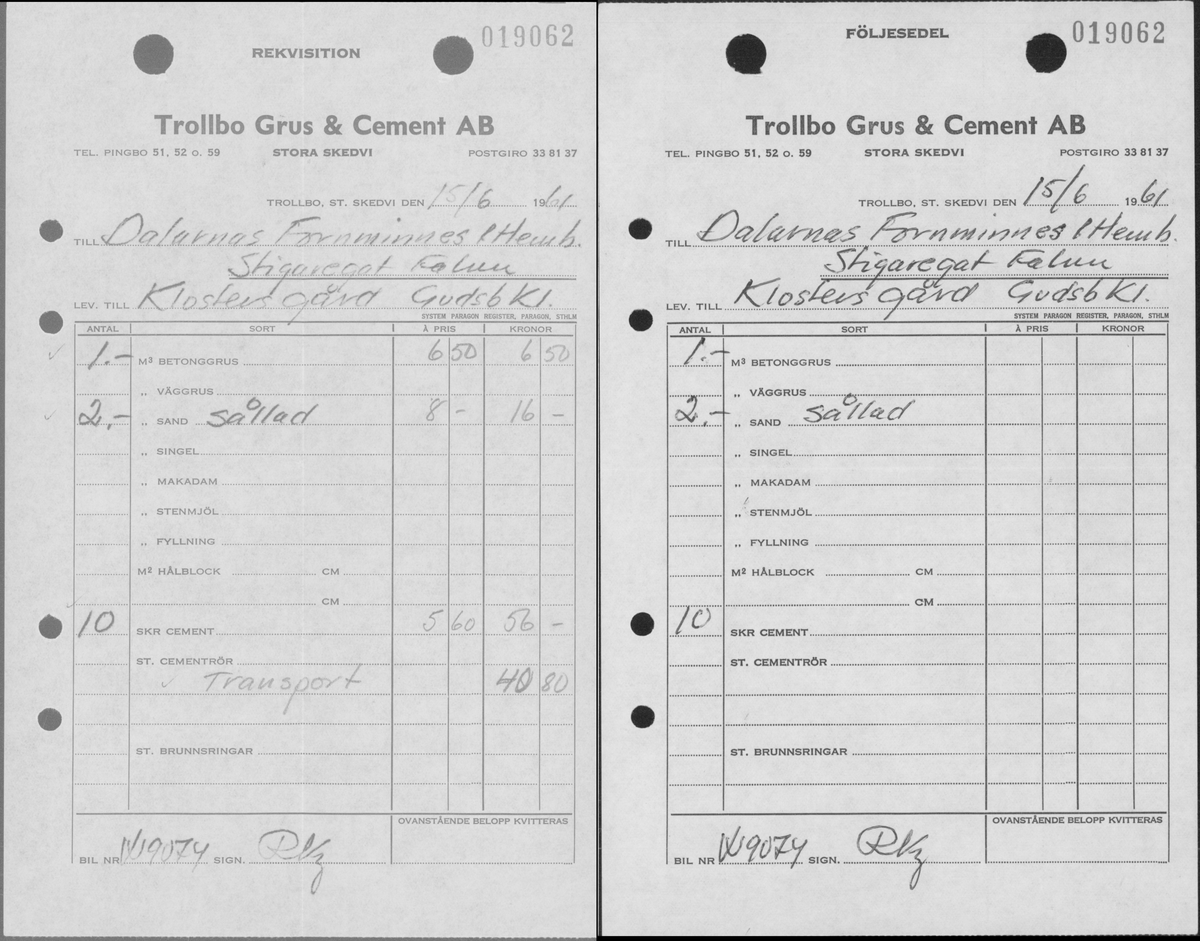 REKVISITION
019062
Trollbo Grus & Cement AB
TEL. PINGBO 51, 52 o. 59 STORA SKEDVI POSTGIRO 33 81 37
TROLLBO, ST. SKEDVI DEN 15/6 1961
TILL Dalarnas Fornminnes / Hemb.
Stigaregat Falun
LEV. TILL Klosters gård Gudsb Kl.
SYSTEM PARAGON REGISTER, PARAGON, STHLM
ANTAL SORT À PRIS KRONOR
1.- M³ BETONGGRUS 6 50 6 50
„ VÄGGRUS
2,- „ SAND sållad 8 - 16 -
„ SINGEL
„ MAKADAM
„ STENMJÖL
„ FYLLNING
M² HÅLBLOCK CM
CM
10 SKR CEMENT 5 60 56 -
ST. CEMENTRÖR
Transport 40 80
ST. BRUNNSRINGAR
OVANSTÅENDE BELOPP KVITTERAS
BIL NR W9074 SIGN.
FÖLJESEDEL
019062
Trollbo Grus & Cement AB
TEL. PINGBO 51, 52 o. 59 STORA SKEDVI POSTGIRO 33 81 37
TROLLBO, ST. SKEDVI DEN 15/6 1961
TILL Dalarnas Fornminnes / Hemb.
Stigaregat Falun
LEV. TILL Klosters gård Gudsb Kl.
SYSTEM PARAGON REGISTER, PARAGON, STHLM
ANTAL SORT À PRIS KRONOR
1.- M³ BETONGGRUS
„ VÄGGRUS
2,- „ SAND sållad
„ SINGEL
„ MAKADAM
„ STENMJÖL
„ FYLLNING
M² HÅLBLOCK CM
CM
10 SKR CEMENT
ST. CEMENTRÖR
ST. BRUNNSRINGAR
OVANSTÅENDE BELOPP KVITTERAS
BIL NR W9074 SIGN.